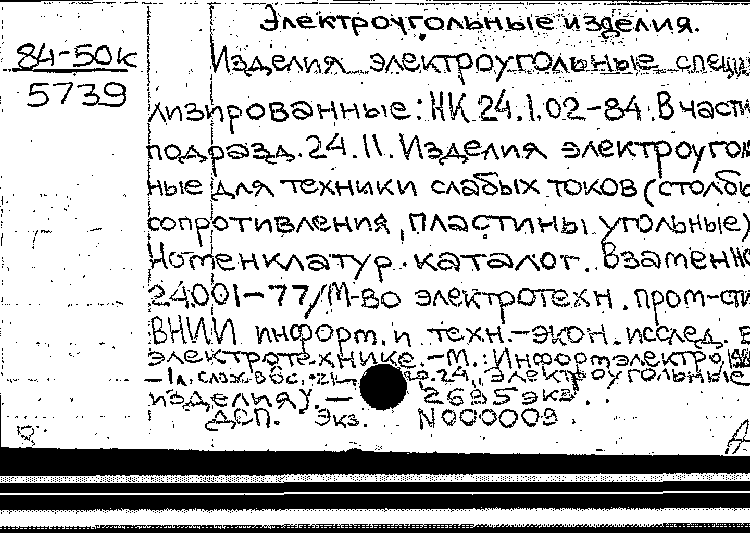 Электроугольные изделия.
84-50к
5739
Изделия электроугольные специа
лизированные: НК 24.1.02-84. В части
подразд. 24.11. Изделия электроугол
ные для техники слабых токов (столбы
сопротивления, пластины угольные)
Номенклатур. каталог. Взамен НК
24.001-77/М-во электротехн. пром-сти
ВНИИ информ. и техн.-экон. исслед. в
электротехнике. - М.: Информэлектро,
- 1л. слож. в 6с. 24. Электроугольные
изделия). - 2685 экз.
ДСП. Экз. N000009.